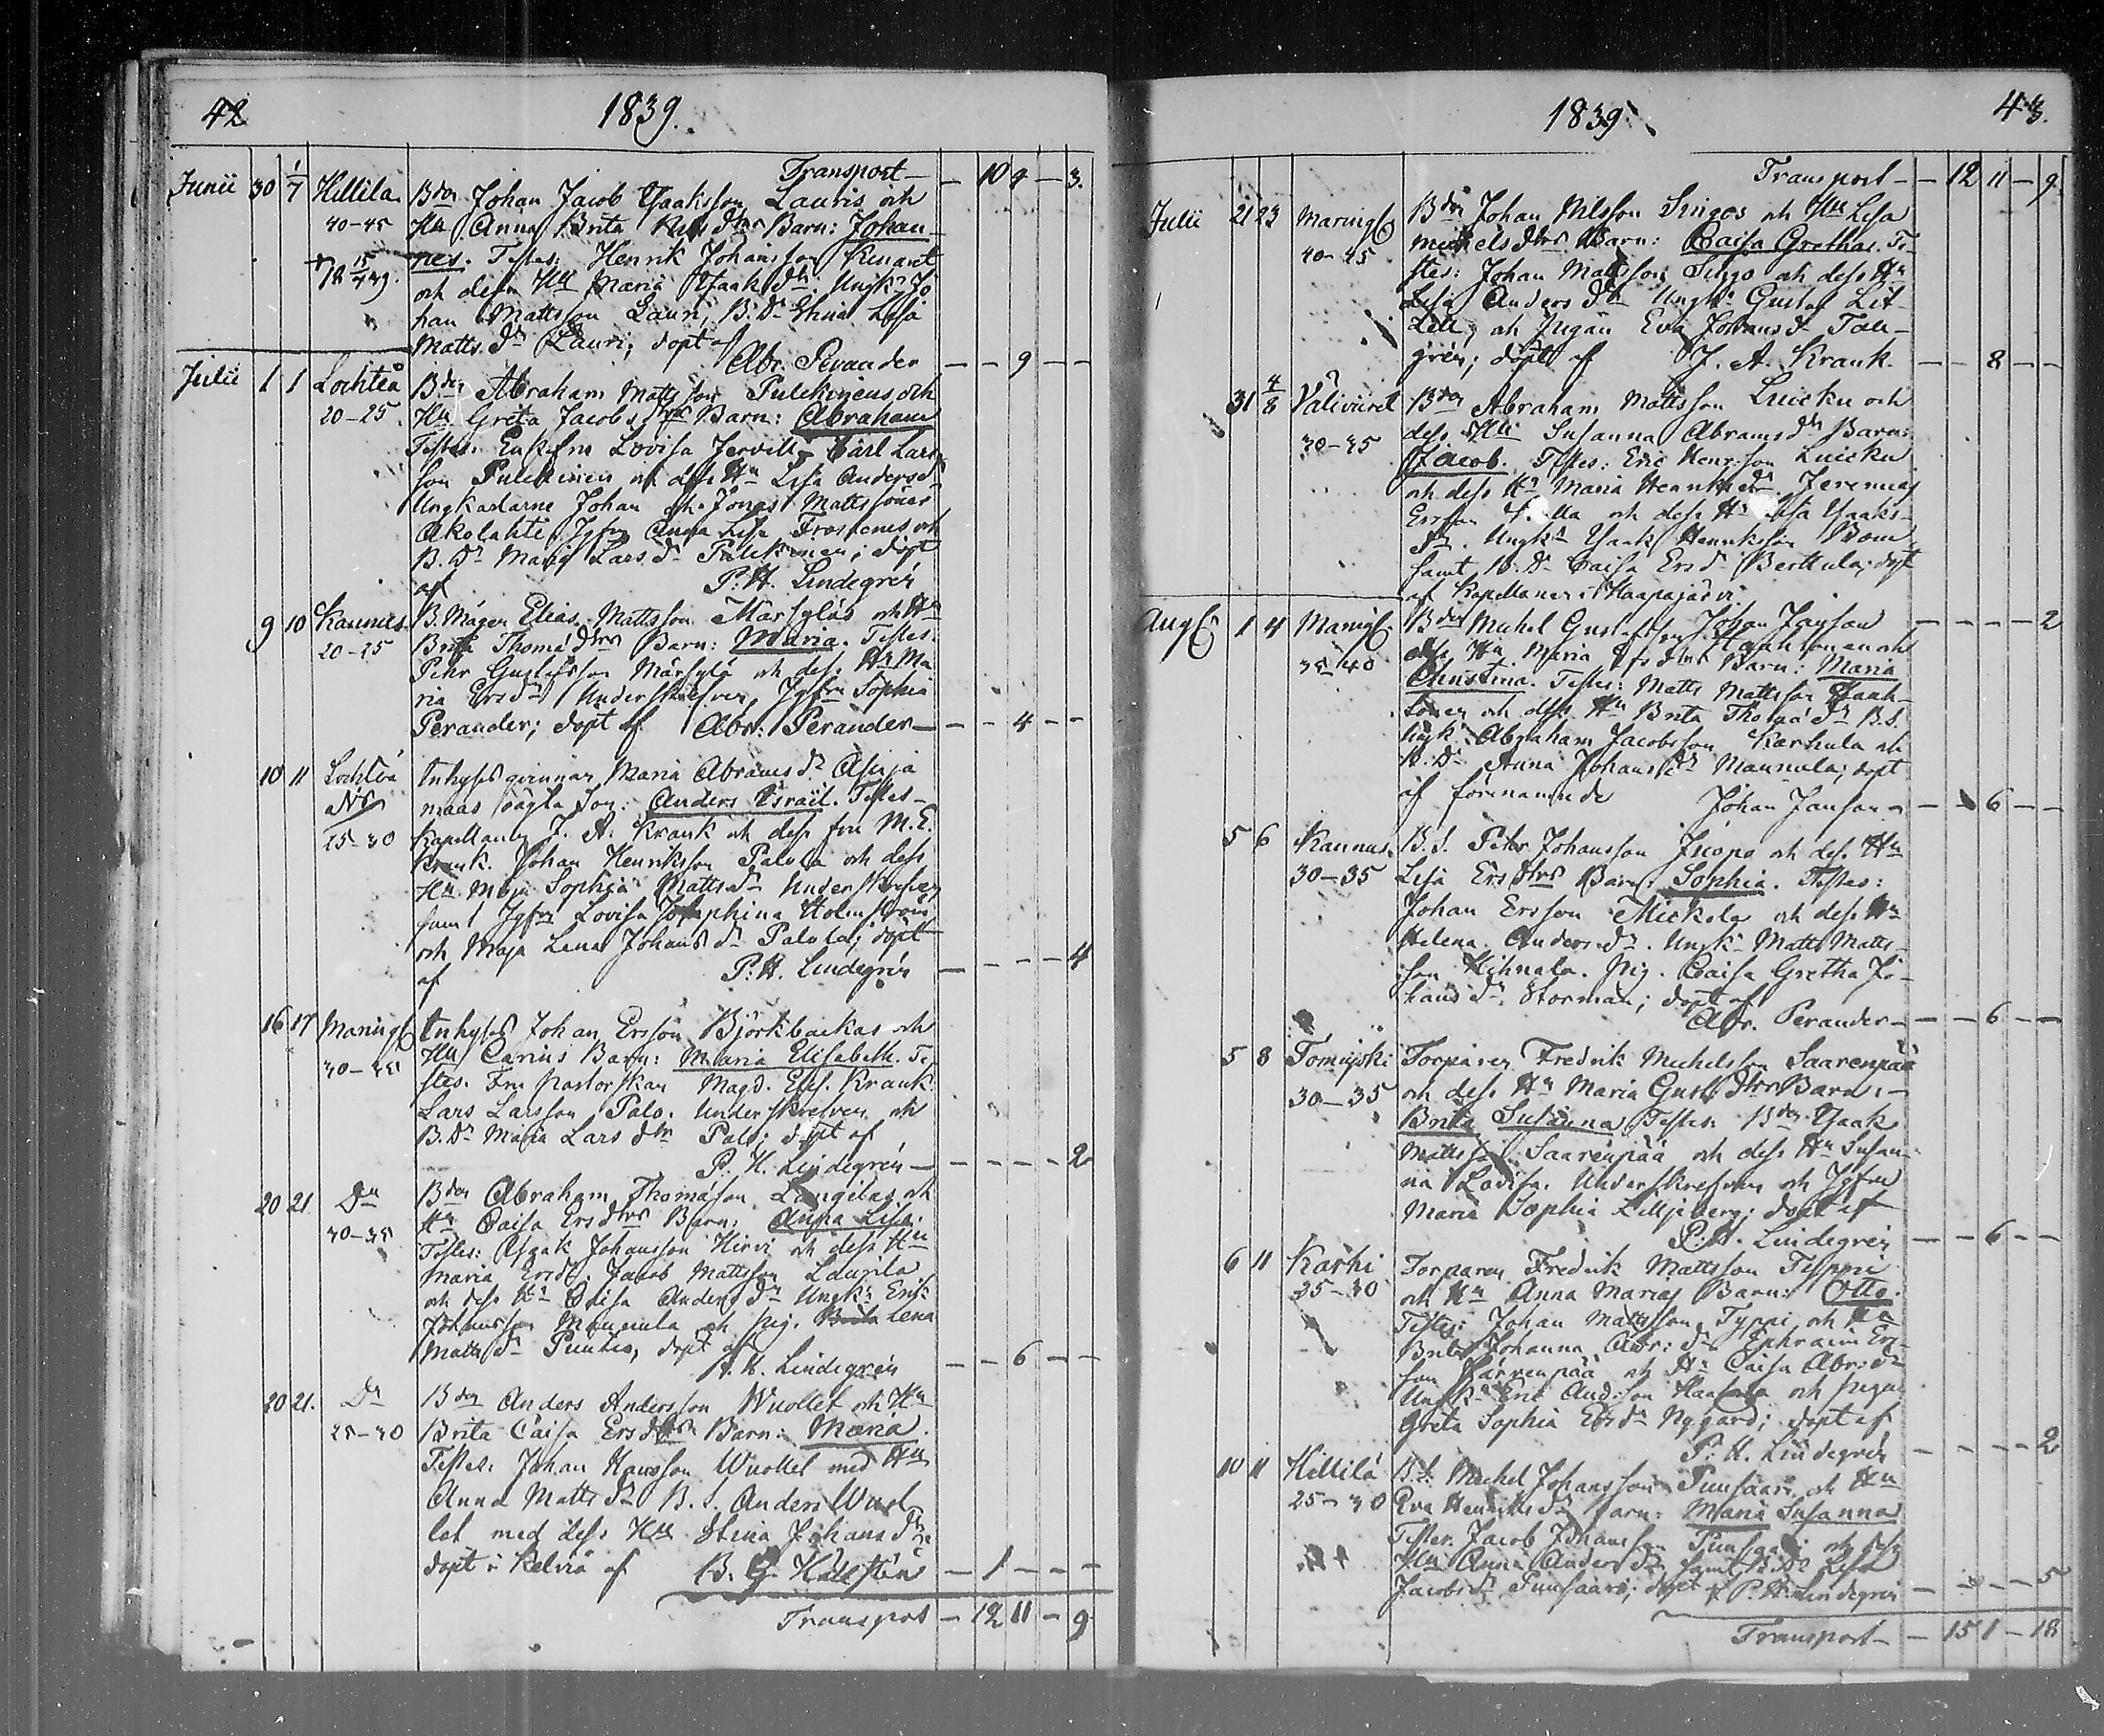 42 1839.
Transport — — 10 9 — 3.
Junii 30 1/7 Hillilä Bdn Johan Jacob Isaaksson Lauris och
40–45 Hu Anna Brita Nils dtrs Barn: Johan-
† 12 15/4 39. nes. Testes: Henrik Johansson
och dess Hu Maria Isaaks dr. Ungk. Jo
han Mattsson Lauri, B. Dr Stina Lisa
Matts dr Lauri; döpt af
Abr. Perander — — 9 — —
Julii 1 1 Lochteå Bdn Abraham Mattsson Pulckinens och
20–25. Hu Greta Jacobs dtrs Barn: Abraham
Testes: Enkefru Lovisa Carl Lars
son Pulckinen och dess Hu Lisa Andersd
Ungkarlarne Johan och Jonas Mattssöner
Akolahti. Jgfru Anna Lisa och
B. Dr Maria Lars dr Pulckinen; döpt
af P. H. Lindegrén
9 10 Kannus B. Mågen Elias Mattsson Märsyläs och Hu
20–25 Brita Thomæ dtrs Barn: Maria. Testes:
Pehr Gustafsson Märsylä och dess Hu Ma
ria Ersdr Underskrefven, Jgfru Sophia
Perander; döpt af Abr: Perander — — — 4 — —
10 11 Lochteå Inhyses qvinnan Maria Abrams dr
maas oägta Son: Anders Israël. Testes
25–30 Kapellanen J. A. Krank och dess fru M. E.
Krank. Johan Henriksson Palola och dess
Hu Maja Sophia Mattsdr Underskrefven
samt Jgfru Lovisa Josephina Holmström
och Maja Lena Johans dr Palola; döpt
af P. H. Lindegrén — — — — 4
16 17 Maningb Inhyses Johan Ersson Björkbackas och
30–35 Hu Carins Barn: Maria Elisabeth. Te
stes. Fru Pastorskan Magd. Elis. Krank
Lars Larsson Palo. Underskrefven och
B. Dr Maria Lars dtr Palo; döpt af
P. H. Lindegrén — — — — — 2
20 21. Do Bdn Abraham Thomasson och
30–35 Hu Caisa Ersdtrs Barn: Anna Lisa.
Testes: Isaak Johansson Hirvi och dess Hu
Maria Ersdr. Jacob Mattsson
och dess Hu Caisa Anders dr Ungk: Erik
Johansson Mannula och Pig. Lena
Matts dr döpt af
P. H. Lindegrén — — 6 — —
20 21. Do Bdn Anders Andersson Wuollet och Hu
25–30 Brita Caisa Ersdtrs Barn: Maria.
Testes: Johan Hansson Wuollet med Hu
Anna Matts dr B. S. Anders Wuol
let med dess Hu Stina Johans dr
döpt i Kelviå af B. G. Hällstén — 1 — — —
Transport — 12 11 — 9
1839. 43.
Transport — — 12 11 — 9
Julii 21 23 Maningb Bdn Johan Nilsson Singos och Hu Lisa
40–45 Michelsdtrs Barn: Caisa Gretha. Te
stes: Johan Mattsson Singo och dess Hu
Lisa Anders dr Ungk: Gustaf
och Pigan Eva Johans dr
grén; döpt af J. A. Krank. — — 8 — —
31 4/8 Välivürri Bdn Abraham Mattsson Luicku och
30–35 dess Hu Susanna Abramsdtrs Barn:
Jacob. Testes: Eric Henrsson Luicku
och dess Hu Maria Henriksdr. Jeremias
Ersson och dess Hu Lisa Isaaks
dr. Ungk: Isaak Henriksson
samt B. Dr Caisa Ersd Berttula; döpt
af Kapellanen i Haapajärvi
Johan Jansan — — — — — 2
Augb 1 4 Maningb. Bdn Michel Gustafsson och
35–40 dess Hu Maria dtrs Barn: Maria
Christina. Testes: Matts Mattsson
och dess Hu Brita Thomæ dr B. S.
Ungk: Abraham Jacobsson Karhula och
B. Dr Anna Johansdr Mannula; döpt
af förenämnde Johan Jansan — — 6 — —
5 6 Kannus. B. S. Pehr Johansson Juopo och dess Hu
30–35 Lisa Ersdtrs Barn: Sophia. Testes:
Johan Ersson Mickola och dess Hu
Helena Andersdr. Ungk: Matts Matts-
son Hihnala. Pig. Caisa Gretha Jo-
hans dr Storman; döpt af
Abr. Perander — — — 6 — —
5 8 Tomujoki Torparen Fredrik Michelsson Saarenpää
30–35 och dess Hu Maria Gust: dtrs Barn: —
Brita Susanna Testes: Bdn Isaak
Mattsson Saarenpää och dess Hu Susan-
na Lovisa. Underskrefven och Jgfru
Maria Sophia Lilljeberg; döpt af
P. H. Lindegrén — — 6 — —
6 11 Karhi Torparen Fredrik Mattsson
25–30 och Hu Anna Marias Barn: Otto.
Testes: Johan Mattsson Typpi och Hu
Brita Johanna Abr: dr Ephraim Ers-
son och Hu Caisa Abr: dr
Ungk: Eric And:son och Pigan
Greta Sophia Ersdr Nygård; döpt af
P. H. Lindegrén — — — — 2
10 11 Hillilä B. S. Michel Johansson Puusaari och Hu
25–30 Eva Henriksdtrs Barn: Maria Susanna
Testes: Jacob Johansson Puusaari och dess
Hu Anna Anders dr, samt B. Dr Lisa
Jacobsdr Puusaari; döpt af P. H. Lindegrén — — — — 5
Transport — — 15 1 — 18